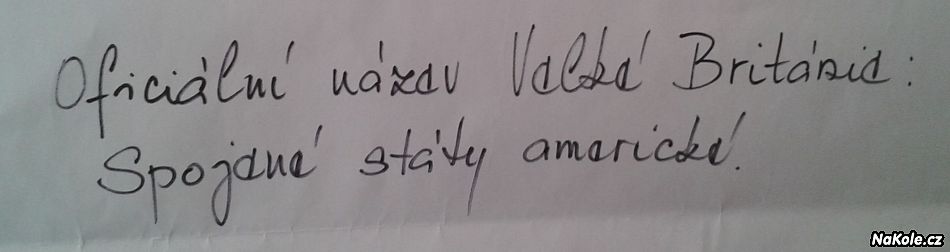 Oficiální název Velké Británie:
Spojené státy americké.
NaKole.cz